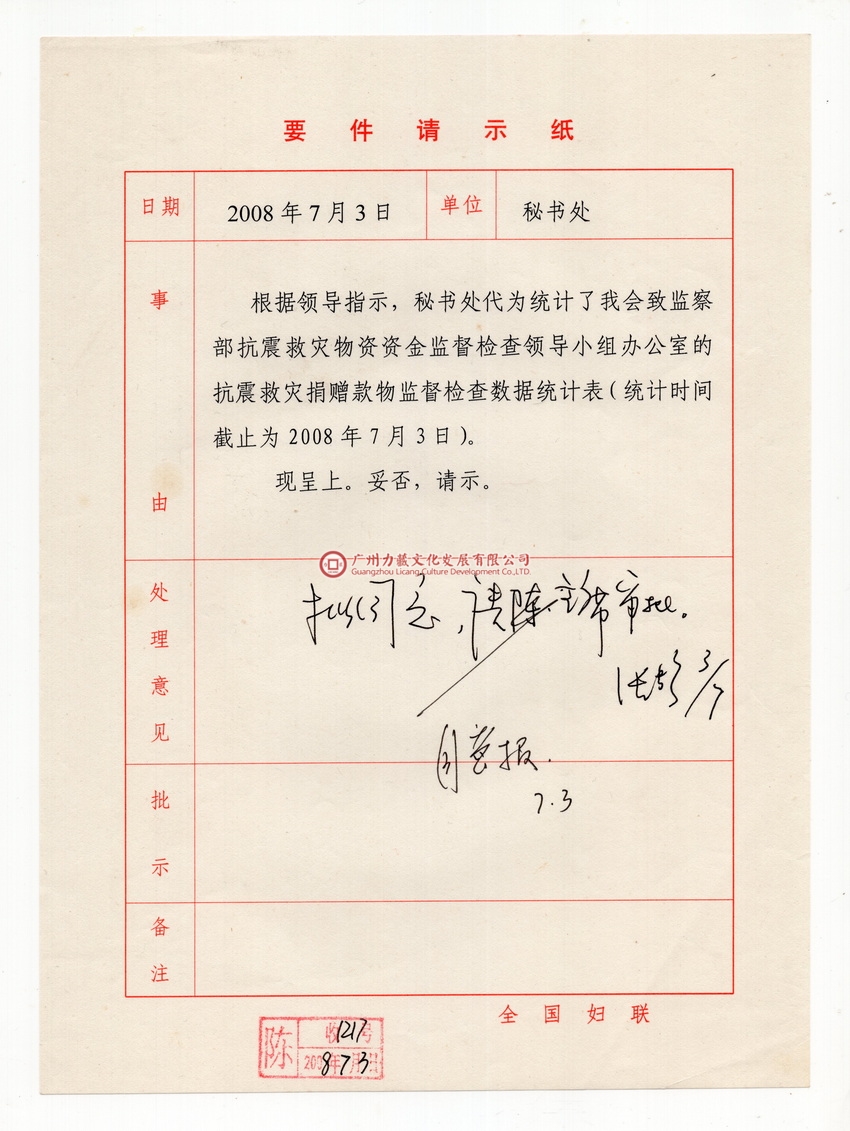 要件请示纸
日期 2008年7月3日 单位 秘书处
事由
根据领导指示，秘书处代为统计了我会致监察
部抗震救灾物资资金监督检查领导小组办公室的
抗震救灾捐赠款物监督检查数据统计表（统计时间
截止为2008年7月3日）。
现呈上。妥否，请示。
广州力藏文化发展有限公司
Guangzhou Licang Culture Development Co.,LTD.
处理意见
拟同意，请陈主席审批。
3/7
同意报.
7.3
批示
备注
全国妇联
陈 收1217号
2008年7月3日